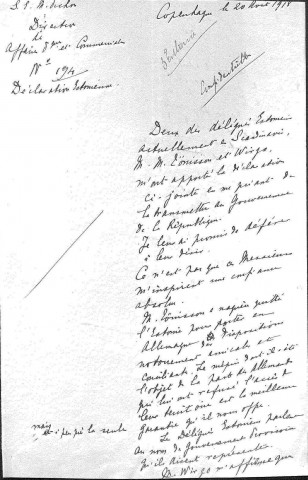 Copenhague le 20 Août 1918
Direction
des
Affaires et Commerciales
N° 194
Déclaration Estonienne
Confidentielle
Deux des délégués Estoniens
actuellement en Scandinavie,
M. M. Tönisson et Wirgo,
m'ont apporté la déclaration
ci-jointe en me priant de
la transmettre au Gouvernement
de la République.
Je leur ai promis de déférer
à leur désir.
Ce n'est pas que ces Messieurs
m'inspirent une confiance
absolue.
M. Tönisson a naguère quitté
l'Estonie pour porter en
Allemagne des dispositions
notoirement amicales et
conciliantes. Le mépris dont il a été
l'objet de la part des Allemands
qui lui ont refusé l'accès de
leur territoire est la meilleure
garantie qu'il nous offre.
mais la seule
Les Délégués Estoniens parlent
au nom du Gouvernement Provisoire
qu'ils disent représenter.
M. Wirgo m'affirme que